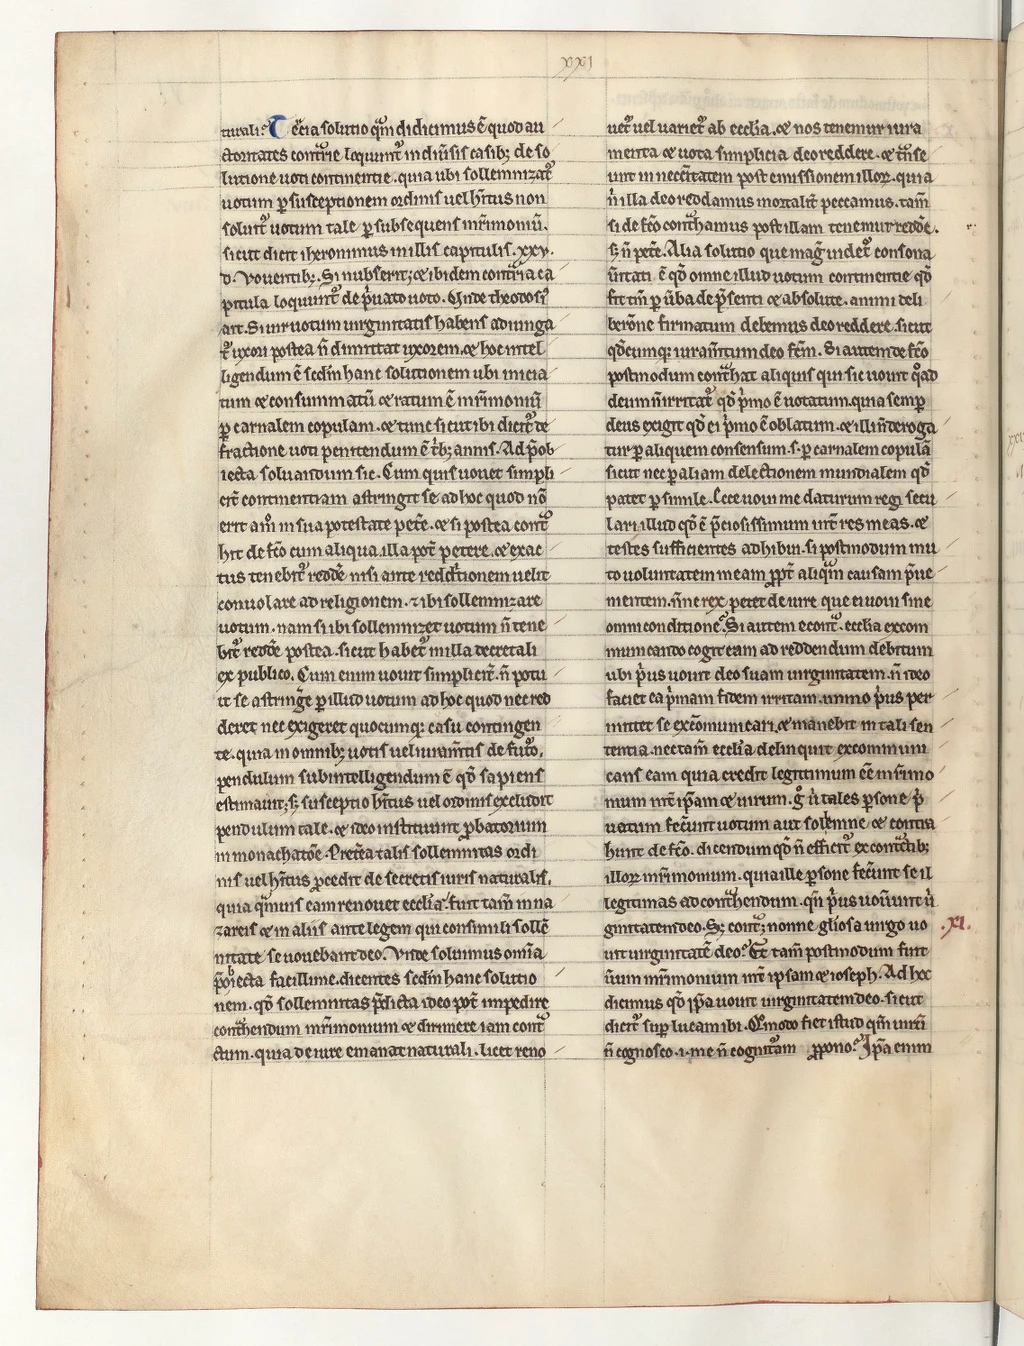 XXI
turali. Tercia solutio qm̄ didicimus ē quod au
ctoritates contrarie loquunt᷑ in diūsis casib; de so
lutione uoti continentie. quia ubi sollemnizat᷑
uotum ꝑ susceptionem ordinis uel h̄itus non
soluit᷑ uotum tale ꝑ subsequens mr̄imoniū.
sicut dicit iheronimus in illis capitulis. xxv.
d. Vouentib;. Si nubserit; ⁊ ibidem contraria ca
pitula loquunt᷑ de p̄uato uoto. Unde theodosi᷑
ait. Si uir uotum uirginitatis habens adiunga
t᷑ uxori postea n̄ dimittat uxorem. ⁊ hoc intel
ligendum ē sedm̄ hanc solutionem ubi inicia
tum ⁊ consummatū ⁊ ratum ē mr̄imoniū
ꝑ carnalem copulam. ⁊ tunc sicut ibi dicit᷑ de
fractione uoti penitendum ē t̄b; annis. Ad p̄ob
iecta soluendum sic. Cum quis uouet simpli
cit̄ continentiam astringit se ad hoc quod nō
erit am̄ in sua potestate pet̄e. ⁊ si postea cont᷑
hit de fc̄o cum aliqua. illa pot̄ petere. ⁊ exac
tus tenebit᷑ redde᷑ nisi ante reddit̄ionem uelit
conuolare ad religionem. ⁊ ibi sollemnizare
uotum. nam si ibi sollemnizet uotum n̄ tene
bit᷑ redde᷑ postea. sicut habet᷑ in illa decretali
ex publico. Cum enim uouit simplicit̄. n̄ potu
it se astringe᷑ ꝑ illud uotum ad hoc quod nec red
deret nec exigeret quocumq; casu contingen
te. quia in omnib; uotis uel iuram̄tis de fut᷑o.
pendulum subintelligendum ē qd̄ sapiens
estimauit; s; susceptio h̄itus uel ordinis excludit
pendulum tale. ⁊ ideo instituunt ꝓbatorium
in monachatōe. Pret̄ea talis sollemnitas ordi
nis uel h̄itus ꝓcedit de secretis iuris naturalis.
quia qm̄uis eam renouet eccl̄ia. fuit tam̄ in na
zareis ⁊ in aliis ante legem qui consimili sollē
nitate se uouebant deo. Unde soluimus om̄ia
p̄obiecta facillime. dicentes sedm̄ hanc solutio
nem. qd̄ sollemnitas p̄dicta ideo pot̄ impedire
cont᷑hendum mr̄imonium ⁊ dirimere iam cont᷑
ctum. quia de iure emanat naturali. licet reno
uet᷑ uel uariet᷑ ab eccl̄ia. ⁊ nos tenemur iura
menta ⁊ uota simplicia deo reddere. ⁊ t̄nse
unt in necc̄itatem post emissionem illoꝝ. quia
n̄ illa deo reddamus mortalit̄ peccamus. tam̄
si de fc̄o cont᷑hamus post illam tenemur redde᷑.
s; n̄ pet̄e. Alia solutio que mag᷑ uidet᷑ consona
ūitati ē qd̄ omne illud uotum continentie qd̄
fit tm̄ ꝑ ūba de p̄senti ⁊ absolute. animi deli
berōne firmatum debemus deo reddere. sicut
qd̄cumq; iuram̄tum deo fc̄m. Si autem de fc̄o
postmodum cont᷑hat aliquis qui sic uouit quoad
deum n̄ irritat᷑ qd̄ p̄mo ē uotatum. quia semꝑ
deus exigit qd̄ ei p̄mo ē oblatum. ⁊ illi n̄ deroga
tur ꝑ aliquem consensum. s. ꝑ carnalem copulā
sicut nec ꝑ aliam delectionem mundialem qd̄
patet ꝑ simile. Ecce uoui me daturum regi secu
lari illud qd̄ ē p̄ciosissimum int̄ res meas. ⁊
testes sufficientes adhibui. si postmodum mu
to uoluntatem meam ꝓpt̄ aliqm̄ causam p̄ue
mentem. n̄ne rex petet de iure que ei uoui sine
omni conditione? Si autem econt᷑. eccl̄ia excom
municando cogit eam ad reddendum debitum
ubi p̄us uouit deo suam uirginitatem. n̄ ideo
faciet ea p̄mam fidem irritam. immo p̄us per
mittet se excōmunicari. ⁊ manebit in tali sen
tentia. nec tam̄ eccl̄ia delinquit excommuni
cans eam quia credit legitimum ēe mr̄imo
nium int̄ ip̄am ⁊ uirum. g̊ ū tales ꝑsone p̄
uatum fec̄unt uotum aut solemne ⁊ contra
hunt de fc̄o. dicendum qd̄ n̄ efficit᷑ ex cont̄ctib;
illoꝝ mr̄imonium. quia ille ꝑsone fec̄unt se il
legitimas ad cont᷑hendum. qn̄ p̄us uoūunt ū
ginitatem deo. S; cont᷑; nonne gl̄iosa uirgo uo .XI.
uit uirginitatē deo? Et tam̄ postmodum fuit
ūum mr̄imonium int̄ ipsam ⁊ ioseph. Ad hoc
dicimus qd̄ ip̄a uouit uirginitatem deo. sicut
dicit᷑ suꝑ lucam ibi. Qm̄odo fiet istud qm̄ uirū
n̄ cognosco. i. me n̄ cognituram ꝓpono? Ip̄a enim